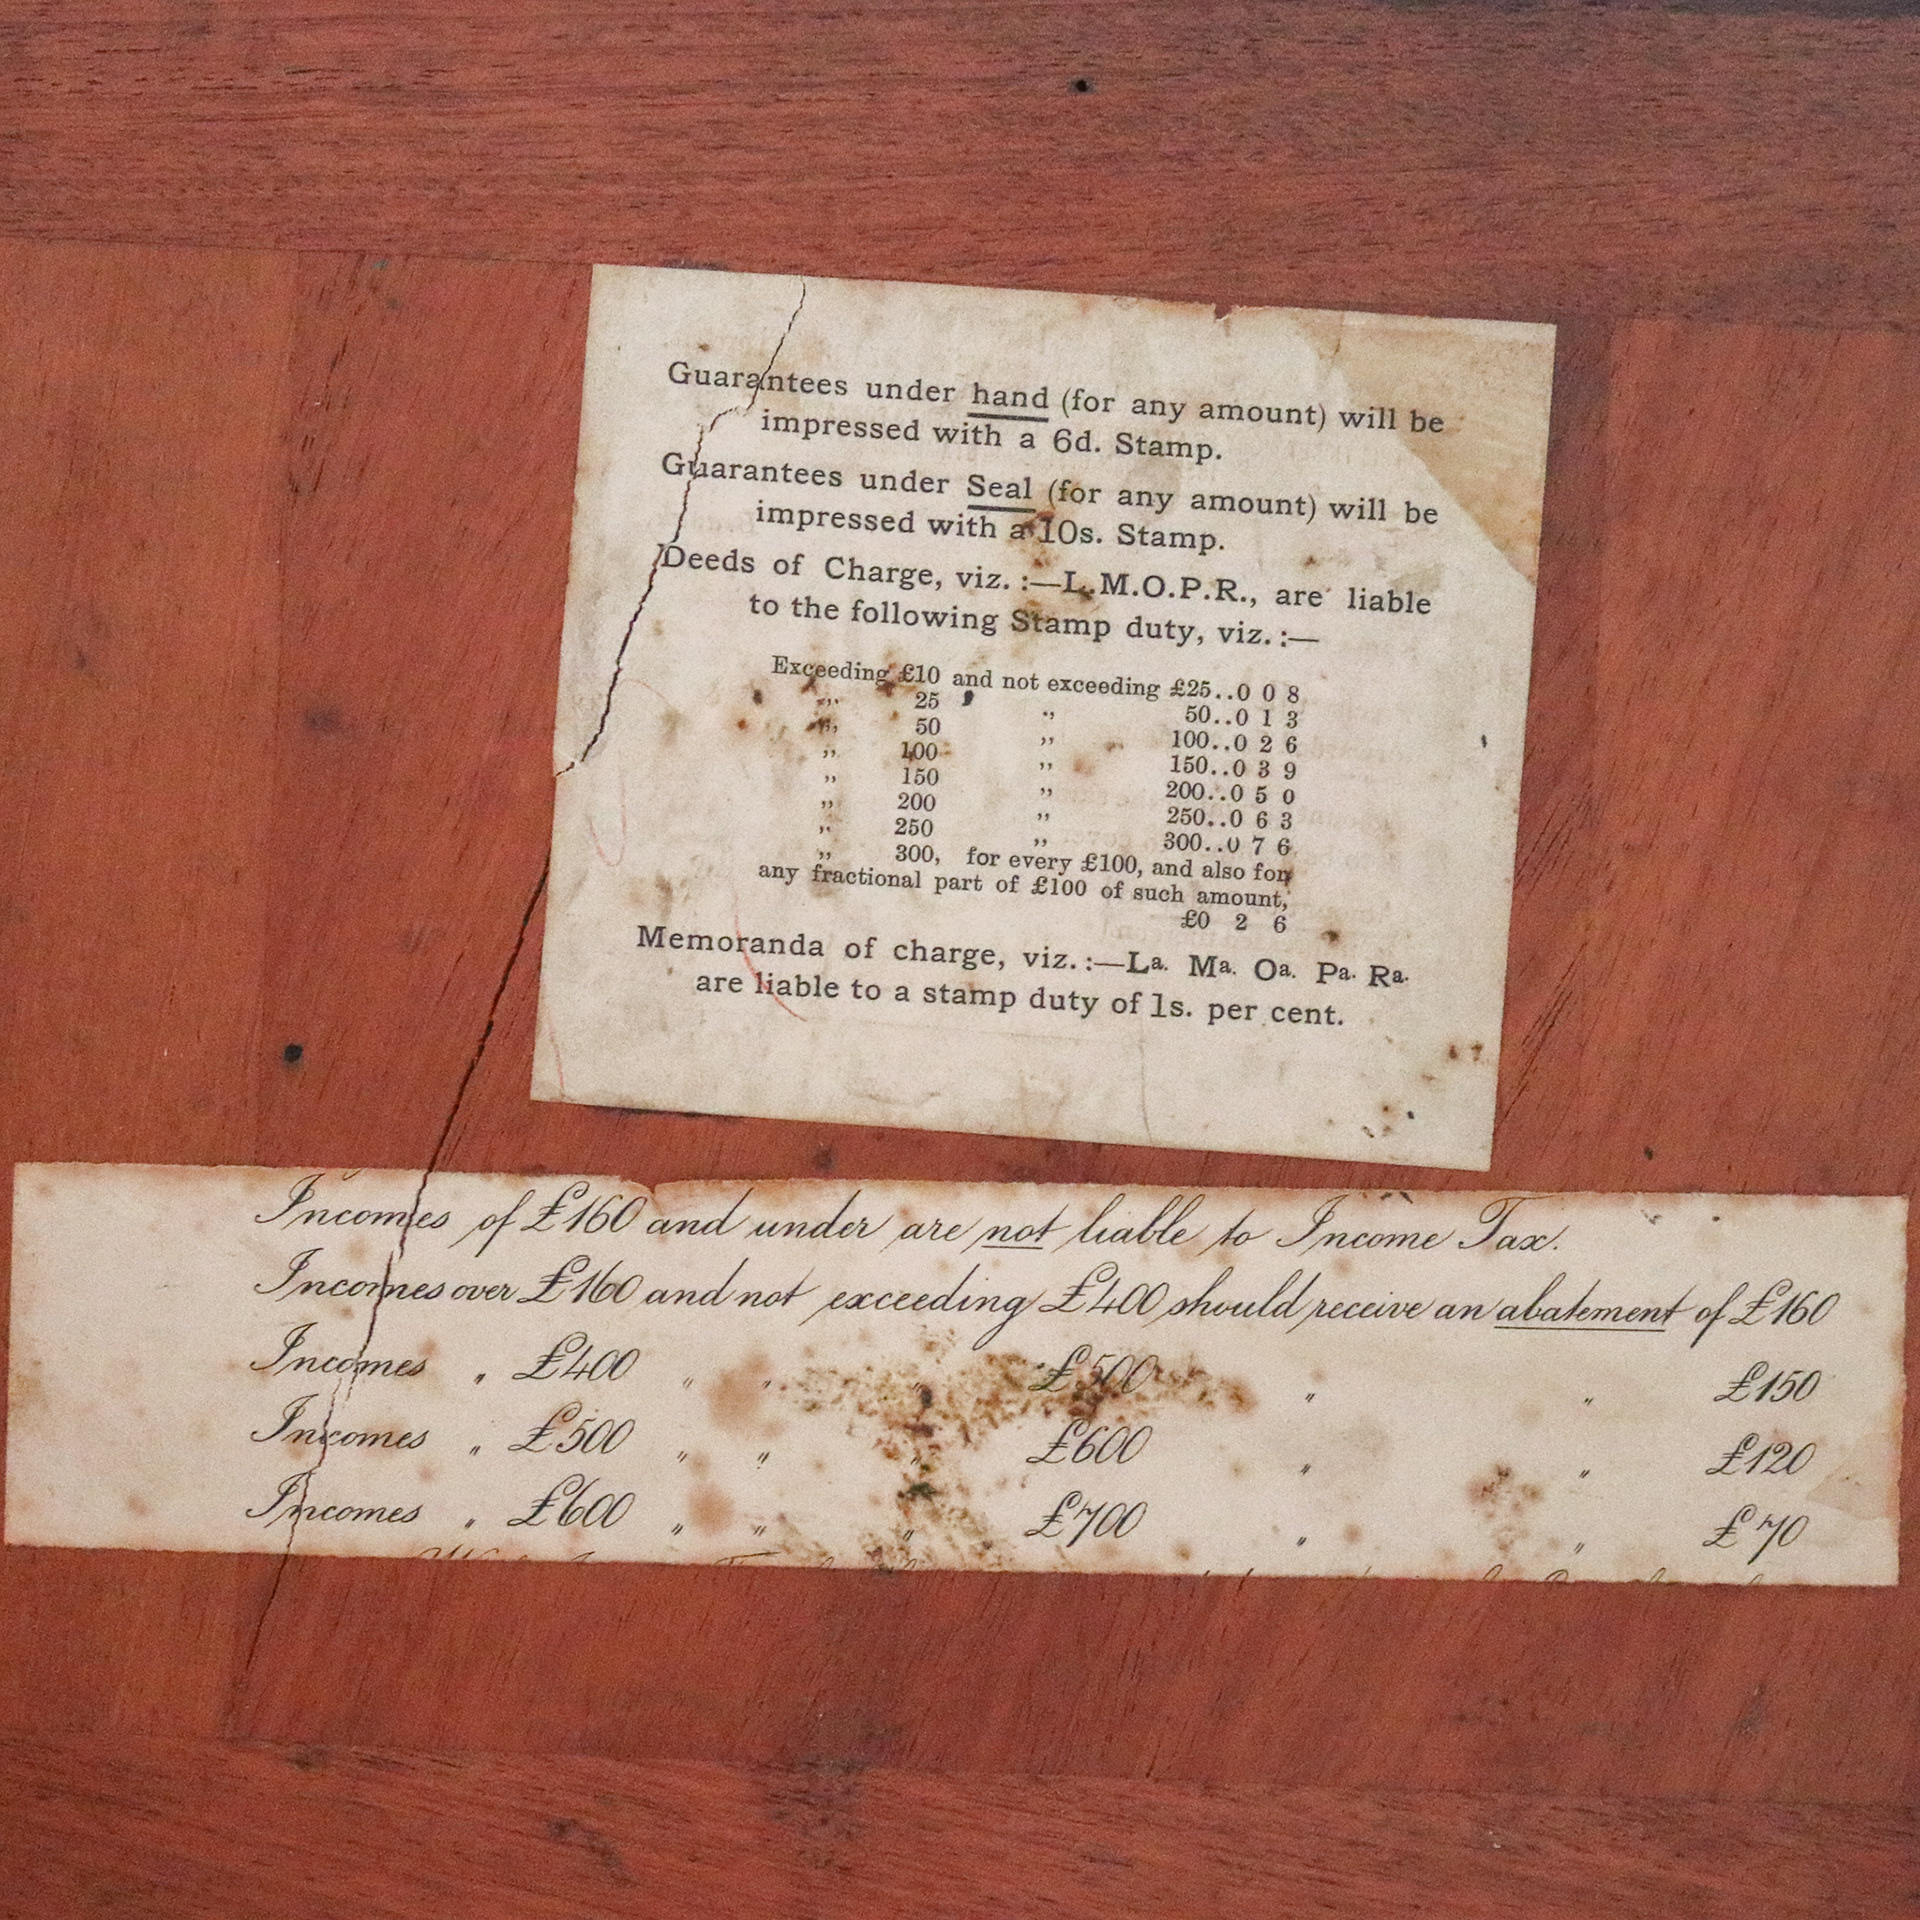 Guarantees under hand (for any amount) will be
impressed with a 6d. Stamp.
Guarantees under Seal (for any amount) will be
impressed with a 10s. Stamp.
Deeds of Charge, viz.:—L.M.O.P.R., are liable
to the following Stamp duty, viz.:—
Exceeding £10 and not exceeding £25..0 0 8
„ 25 „ 50..0 1 3
„ 50 „ 100..0 2 6
„ 100 „ 150..0 3 9
„ 150 „ 200..0 5 0
„ 200 „ 250..0 6 3
„ 250 „ 300..0 7 6
„ 300, for every £100, and also for
any fractional part of £100 of such amount,
£0 2 6
Memoranda of charge, viz.:—La. Ma. Oa. Pa. Ra.
are liable to a stamp duty of 1s. per cent.
Incomes of £160 and under are not liable to Income Tax.
Incomes over £160 and not exceeding £400 should receive an abatement of £160
Incomes „ £400 „ „ „ £500 „ „ £150
Incomes „ £500 „ „ „ £600 „ „ £120
Incomes „ £600 „ „ „ £700 „ „ £70